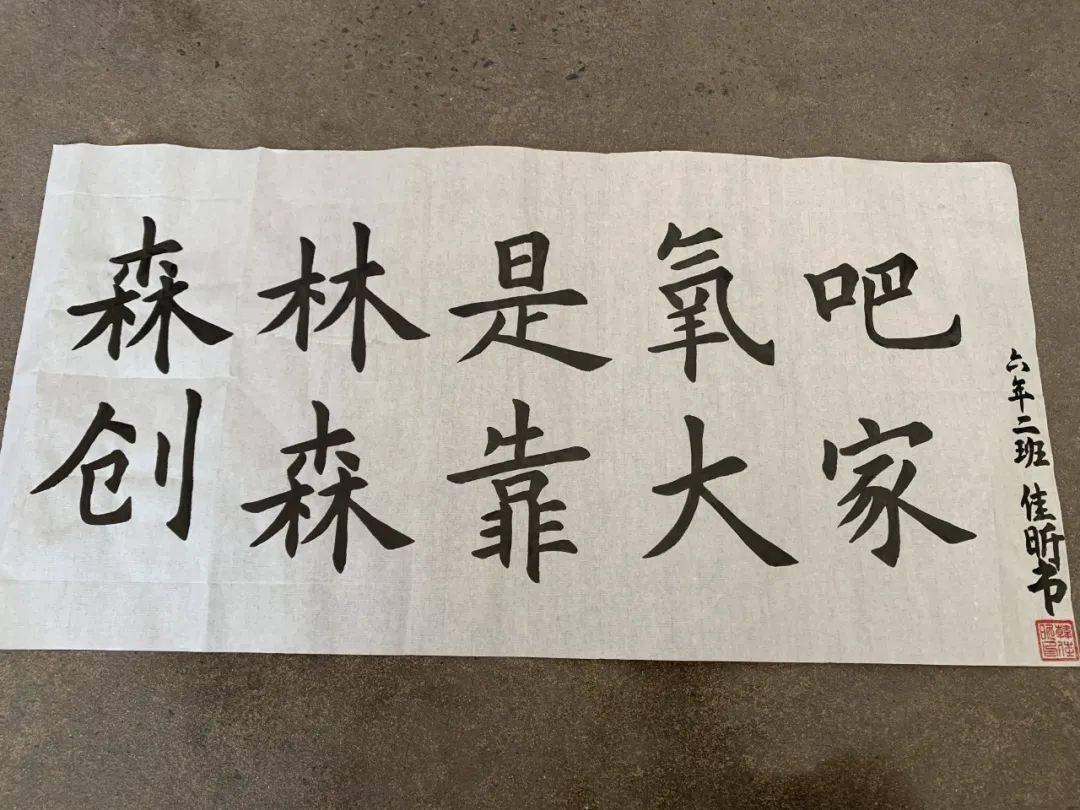 森林是氧吧
创森靠大家
六年二班 佳昕书